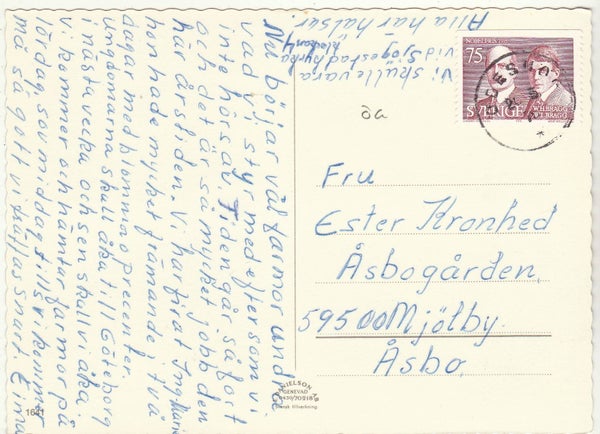 Nu börjar väl farmor undra
vad vi styr med eftersom vi
inte hörs av. Tiden går så fort
och det är så mycket jobb den
här årstiden. Vi har firat Ing-Marie
hon hade mycket främande två
dagar med blommo precenter.
Ungdomarna skall åka till Göteborg
i nästa vecka och sen skall vi åka.
Vi kommer och hämtar farmor på
lördag, sov middag tills vi kommer
må så gott vi träffas snart Eina
Vi skulle vara
vid Sjögestad kyrka
klockan 4
Alla här hälsar
NOBELPRIS
75
SVERIGE
W.H. BRAGG
W.L. BRAGG
Fru
Ester Kronhed
Åsbogården
59500 Mjölby
Åsbo
DANIELSON
GENEVAD
0430/70218
Svensk tillverkning
1641